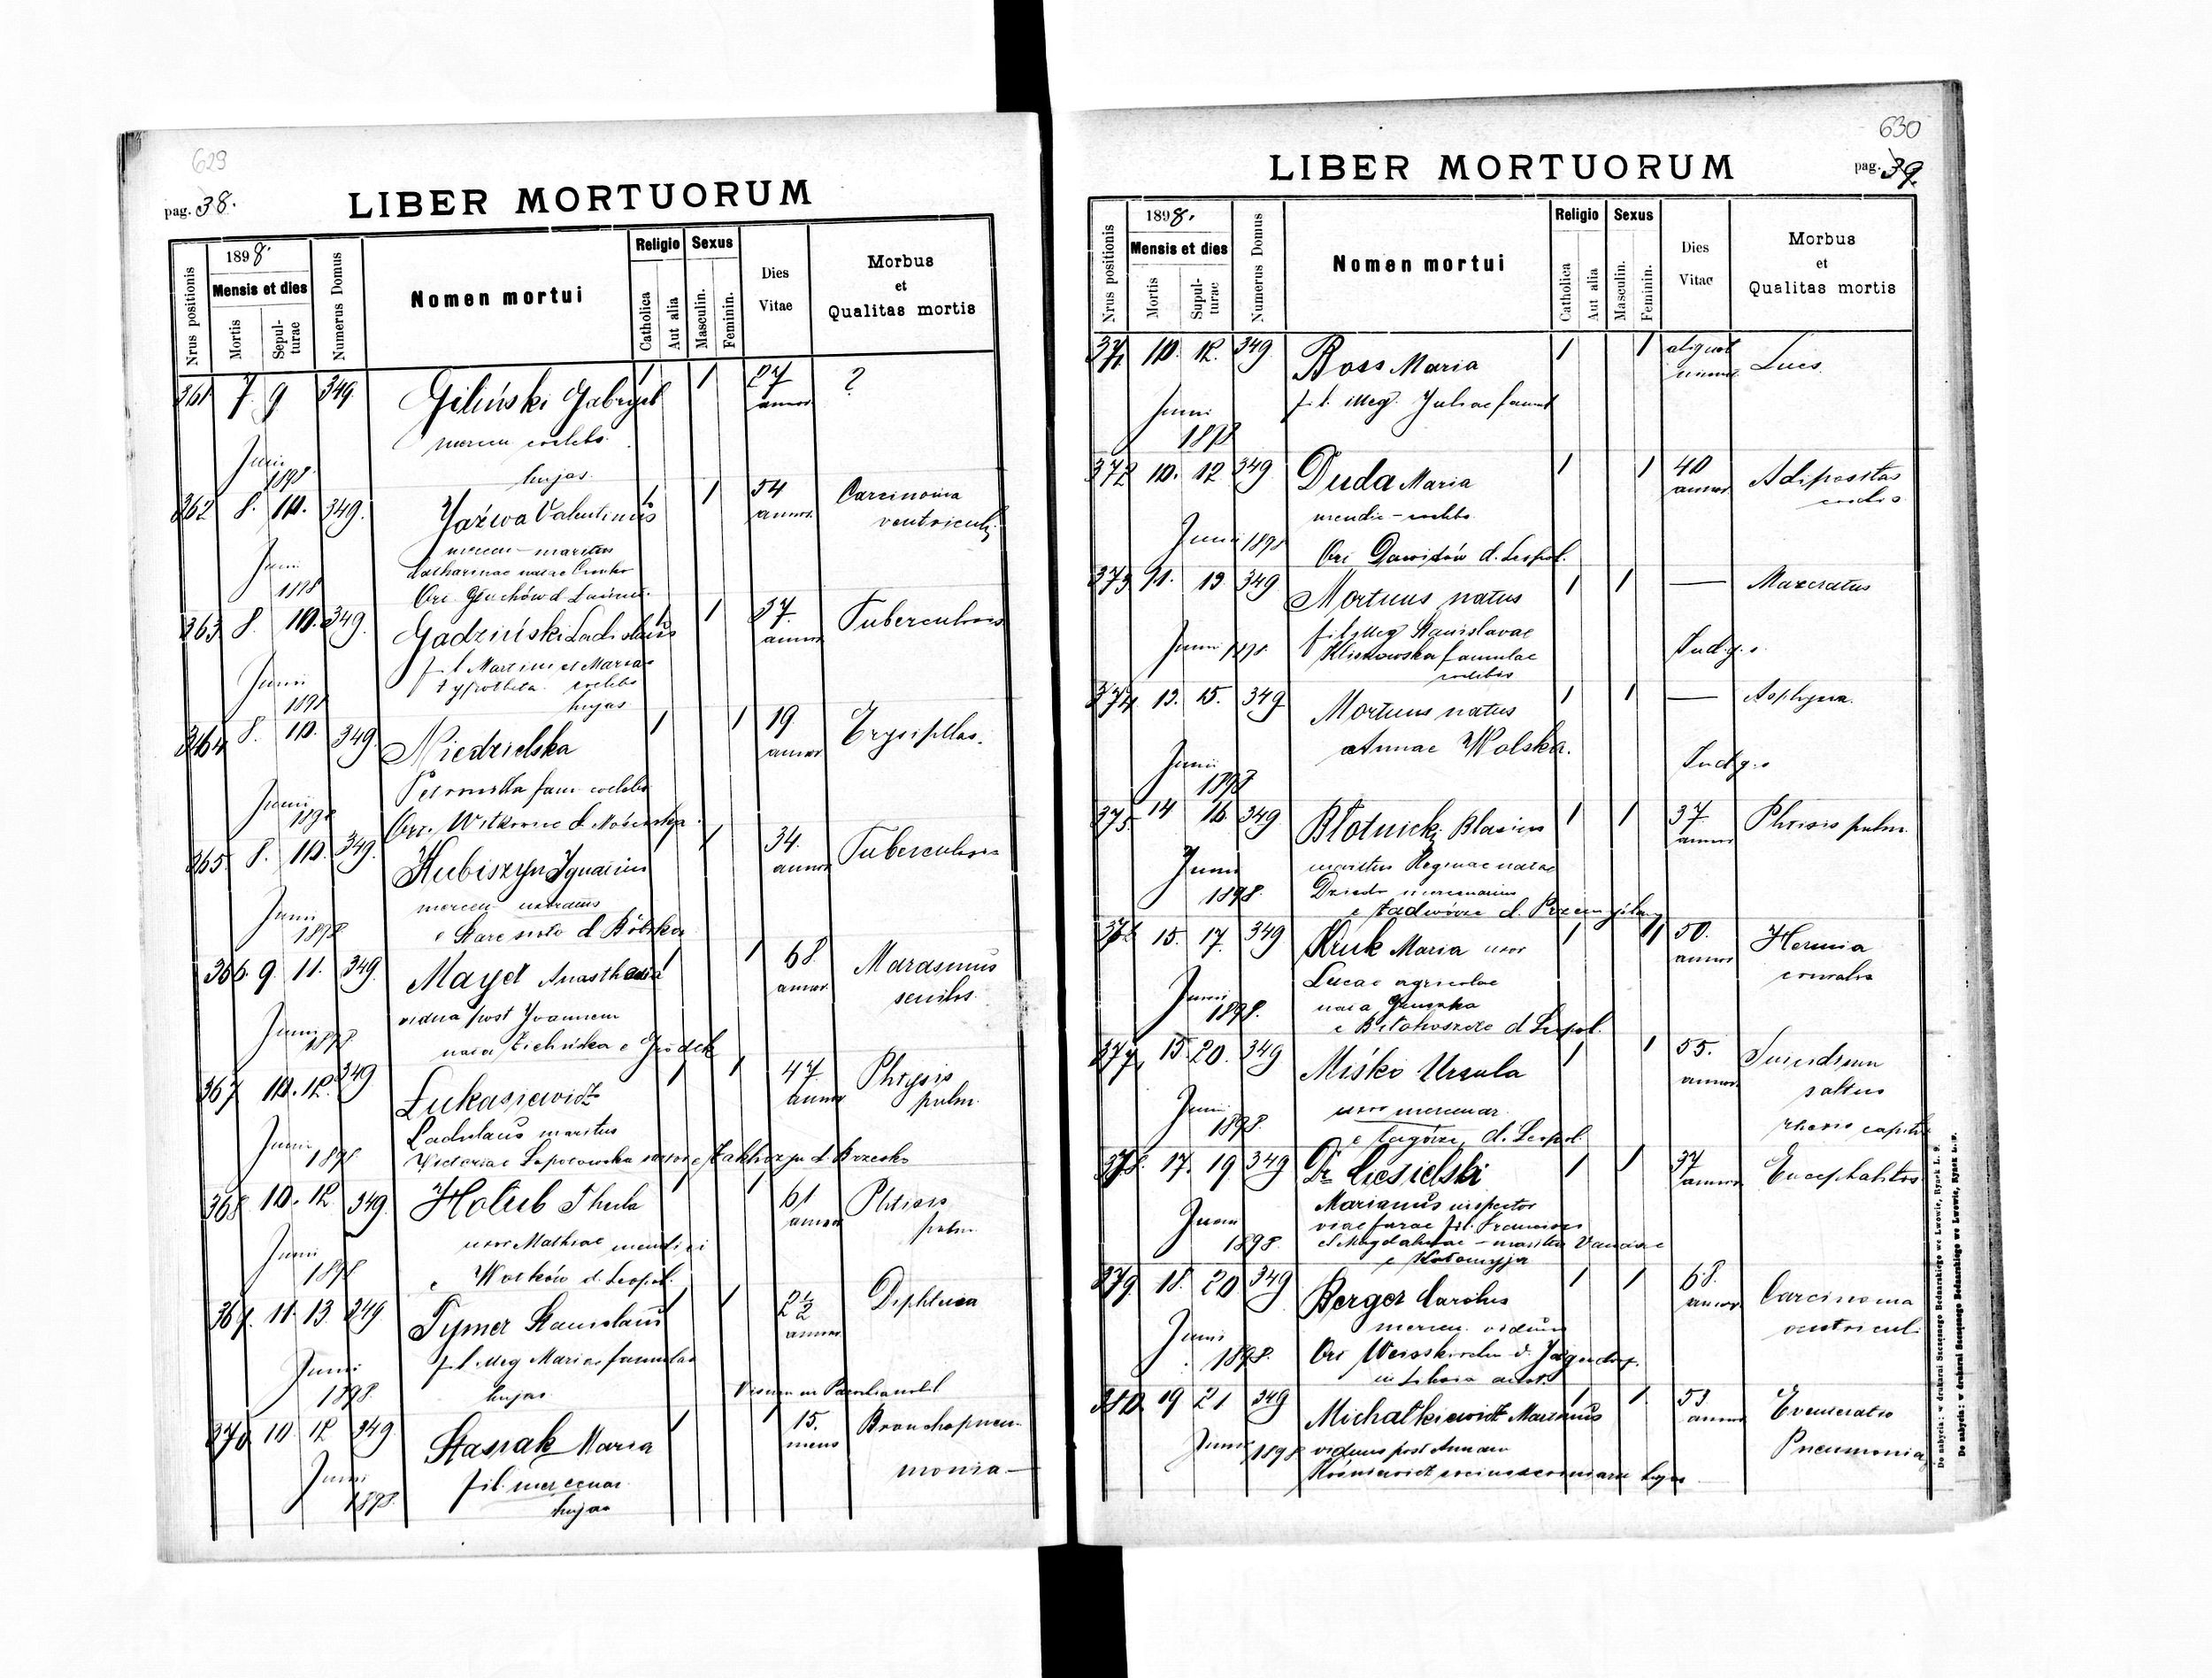 629
pag. 38.
LIBER MORTUORUM
Nrus positionis
1898.
Mensis et dies
Mortis
Sepul-turae
Numerus Domus
Nomen mortui
Religio
Catholica
Aut alia
Sexus
Masculin.
Feminin.
Dies Vitae
Morbus et Qualitas mortis
361 7 9 349 Giliński Gabryel 1 1 27 annor ?
mercen coelebs
Juni 1898. hujas.
362 8. 10. 349. Jaźwa Valentinus 1 1 54 annor Carcinoma
mercen - maritus ventriculi
Juni Catharinae natae
1898 Ori Głuchów d. Łańcut.
363 8. 10. 349. Gadziński Ladislaus 1 1 37. annor Tuberculosis
fil Martini et Mariae
Juni typotheta coelebs
1898 hujas
364 8. 10. 349. Niedzielska 1 1 19 annor Erysipelas.
Petronella fam coelebs
Juni 1898 Ori. Witkowice d.
365. 8. 10. 349. Kubiszyn Ignatius 1 1 34. annor Tuberculosis
mercen uxoratus
Juni 1898 e Stare sioło d Bóbrka
366. 9 11. 349. Mayet Anasthasia 1 1 68. annor Marasmus
vidua post Joannem senilis
Juni 1898 nata Zielińska e Gródek
367 10. 12. 349 Lukasiewicz 1 1 47. annor Phtysis
Ladislaus maritus pulm.
Juni 1898 Victoriae Sapotowska e Zakliczyn d. Brzesko
368 10. 12 349. Holub Thecla 1 1 61 annor Phtisis
uxor Mathiae mendici pulm
Juni 1898 e Wołków d. Leopol.
369. 11. 13. 349 Tymer Stanislaus 1 1 2½ annor. Diphteria
Juni fil. illeg Mariae famulae
1898 hujas
370 10 12 349 Stasiak Maria 1 1 15. mens Bronchopneu-
Juni fil. mercenar. monia
1898. hujas
630
pag. 39.
LIBER MORTUORUM
Nrus positionis
1898.
Mensis et dies
Mortis
Supul-turae
Numerus Domus
Nomen mortui
Religio
Catholica
Aut alia
Sexus
Masculin.
Feminin.
Dies Vitae
Morbus et Qualitas mortis
371 10. 12. 349 Boss Maria 1 1 aliquot Lues.
fil. illeg. Juliae famul
Juni 1898
372 10. 12 349 Duda Maria 1 1 40 annor Adipositas
mendic - coelebs. cordis
Juni 1898 Ori Dawidów d. Leopol.
373 11. 13 349 Mortuus natus 1 1 — Maceratus
fil illeg Stanislavae
Juni 1898. famulae
coelebis
374 13. 15. 349 Mortuus natus 1 1 — Asphyxia.
Annae Wolska.
Juni 1898
375. 14 16. 349 Błotnicki Blasius 1 1 37 annor Phtisis pulm.
Juni maritus Reginae natae
1898. mercenarius
e Zadwórze d. Przemyślany
376 15. 17. 349 Kruk Maria uxor 1 1 50. annor Hernia
Lucae agricolae cruralis
Juni nata
1898. e Biłohoszcze d Leopol.
377 15 20. 349 Miśko Ursula 1 1 55. annor Suicidium
uxor mercenar. saltus
Juni 1898. e Zagórze, d. Leopol.
378. 17. 19. 349 Dr. Ciesielski 1 1 37 annor Encephalitis
Marianus inspector
Juni viae ferae fil. Francisci
1898. et Magdalenae - maritus
e Kołomyja
379 18. 20 349 Berger Carolus 1 1 68. annor Carcinoma
mercen. viduus ventriculi
Juni Ori Weisskirchen d. Jägerndorf.
1898. in Silesia austr.
380. 19 21 349 Michalkiewicz Martinus 1 1 53 annor Eventeratio
Juni 1898 viduus post Annam Pneumonia
Do nabycia: w drukarni Szczęsnego Bednarskiego we Lwowie, Rynek L. 9.
Do nabycia: w drukarni Szczęsnego Bednarskiego we Lwowie, Rynek L. 9.